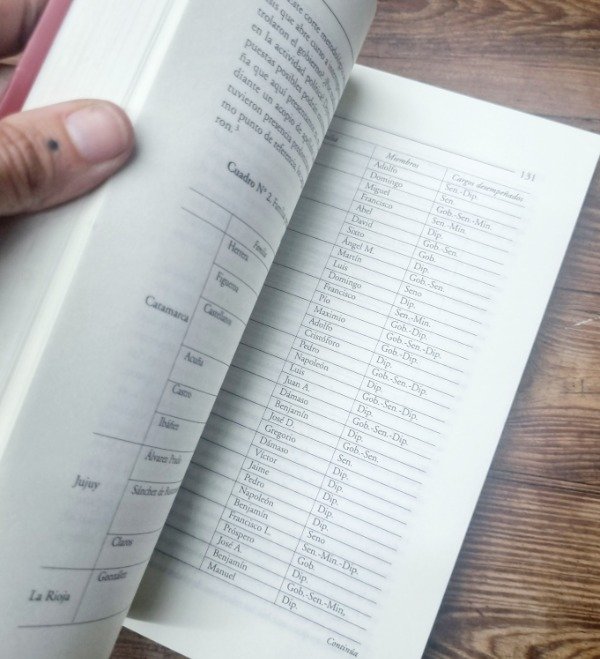 corte
sis que abre curso a
trolaron el gobierno?
en la actividad política
puestas posibles
ña que aquí presentamos
diante un acopio de
tuvieron presencia
mo punto de referencia
ron.³
Cuadro Nº 2.
Familia
Catamarca
Herrera
Figueroa
Castellanos
Acuña
Castro
Ibáñez
Jujuy
Álvarez Prado
Sánchez de
Claros
La Rioja
González
131
Miembros Cargos desempeñados
Adolfo Sen.-Dip.
Domingo Sen.
Miguel Gob.-Sen.-Min.
Francisco Sen.-Min.
Abel Dip.
David Gob.-Sen.
Sixto Gob.
Ángel M. Dip.
Martín Gob.-Sen.
Luis Seno
Domingo Dip.
Francisco Sen.-Min.
Pío Gob.-Dip.
Maximio Gob.-Sen.-Dip.
Adolfo Gob.-Dip.
Crisóforo Dip.
Pedro Gob.-Sen.-Dip.
Napoleón Dip.
Luis Gob.-Sen.-Dip.
Juan A. Dip.
Dámaso Gob.-Sen.-Dip.
Benjamín Dip.
José D. Gob.-Sen.
Gregorio Sen.
Dámaso Dip.
Víctor Dip.
Jaime Dip.
Pedro Dip.
Napoleón Dip.
Benjamín Seno
Francisco L. Sen.-Min.-Dip.
Próspero Gob.
José A. Dip
Benjamín Gob.-Sen.-Min.
Manuel Dip.
Continúa